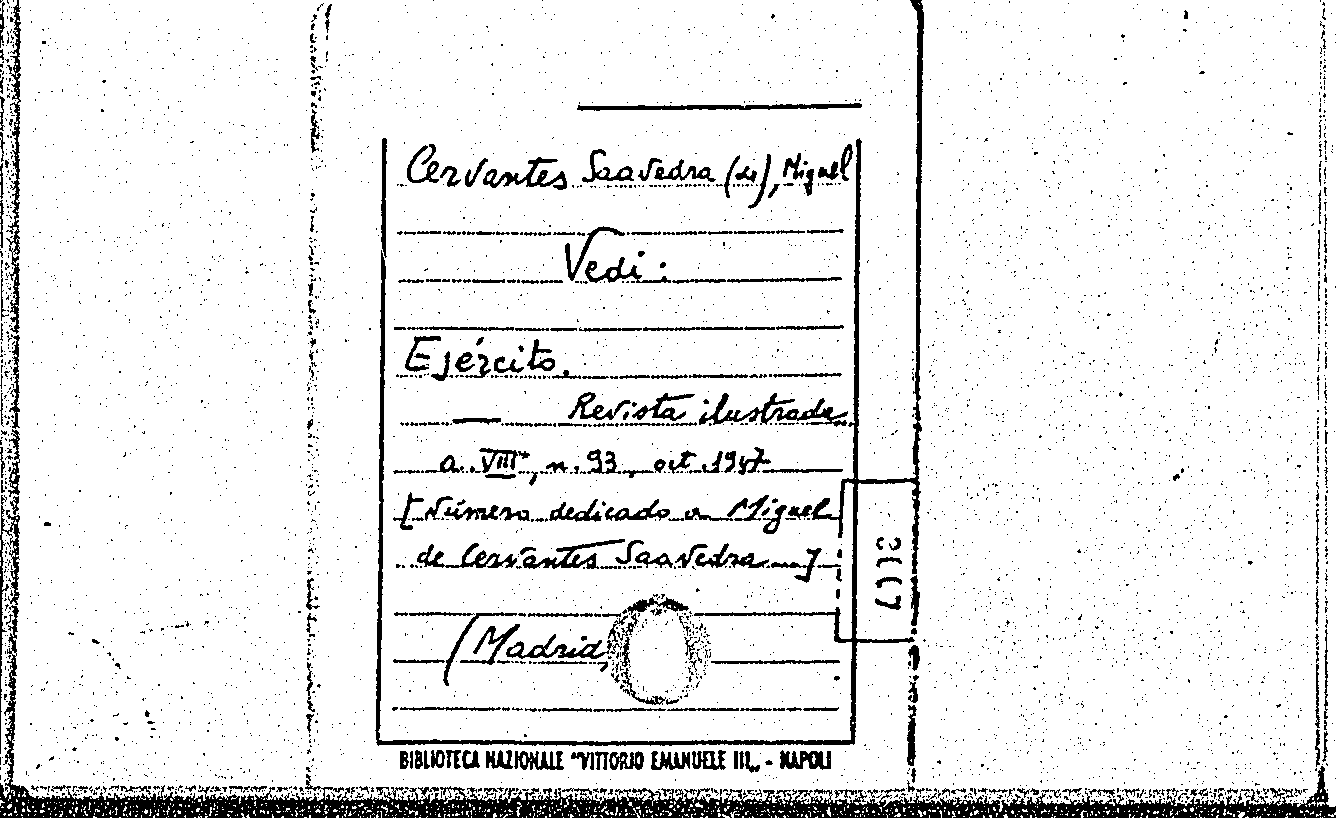 Cervantes Saavedra (de), Miguel
Vedi:
Ejército.
— Revista ilustrada.
a. VIII°, n. 93, oct. 1947
[Número dedicado a Miguel
de Cervantes Saavedra...]
(Madrid,
BIBLIOTECA NAZIONALE "VITTORIO EMANUELE III„ - NAPOLI